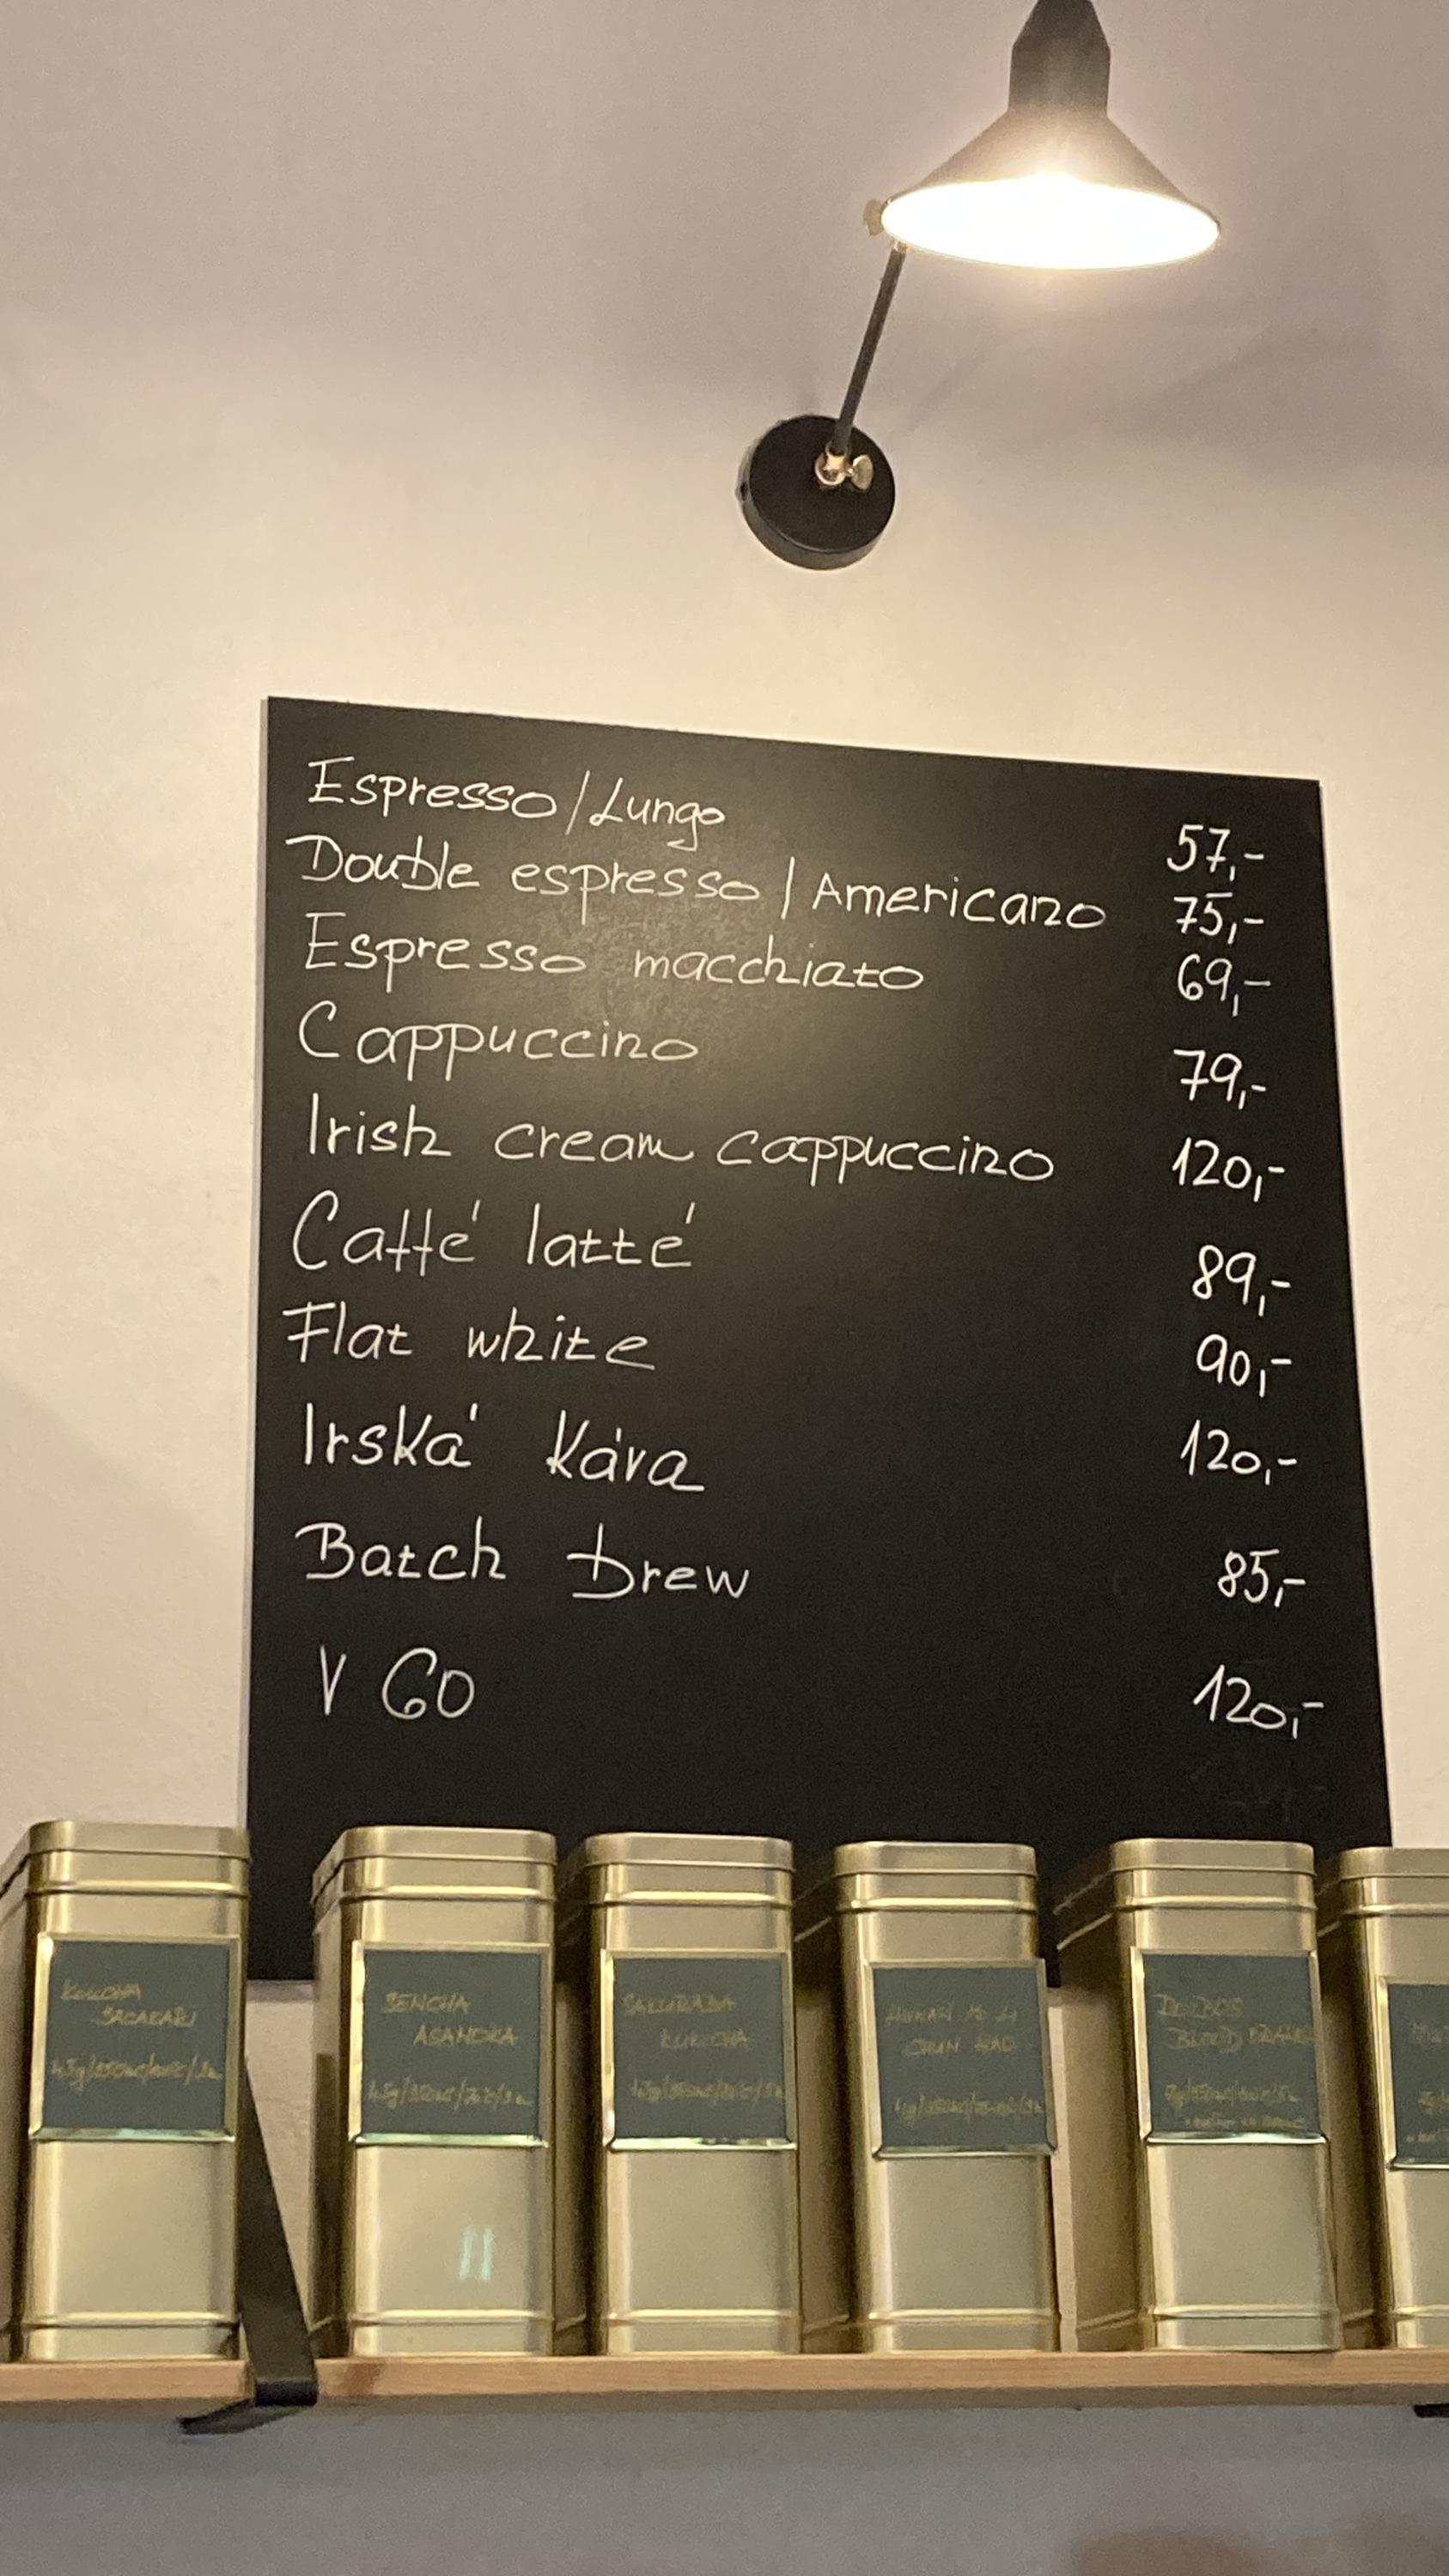 Espresso/Lungo 57,-
Double espresso/Americano 75,-
Espresso macchiato 69,-
Cappuccino 79,-
Irish cream cappuccino 120,-
Caffé latté 89,-
Flat white 90,-
Irská káva 120,-
Batch brew 85,-
V60 120,-
KUKICHA
SENCHA
ASANOKA
SAKURABA
KUKICHA
CHUN HAO
BLOODY ORANGE